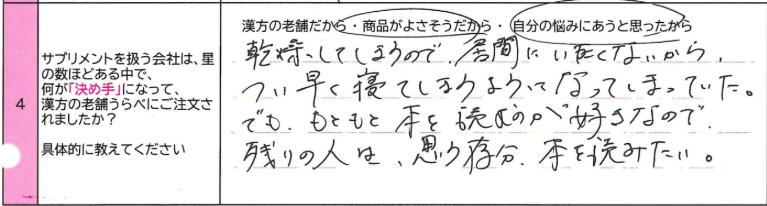 4
サプリメントを扱う会社は、星
の数ほどある中で、
何が「決め手」になって、
漢方の老舗うらべにご注文さ
れましたか？
具体的に教えてください
漢方の老舗だから・商品がよさそうだから・自分の悩みにあうと思ったから
乾燥してしまうので、居間にいたくないから、
つい早く寝てしまうようになってしまっていた。
でも、もともと本を読むのが好きなので、
残りの人は、思う存分、本を読みたい。